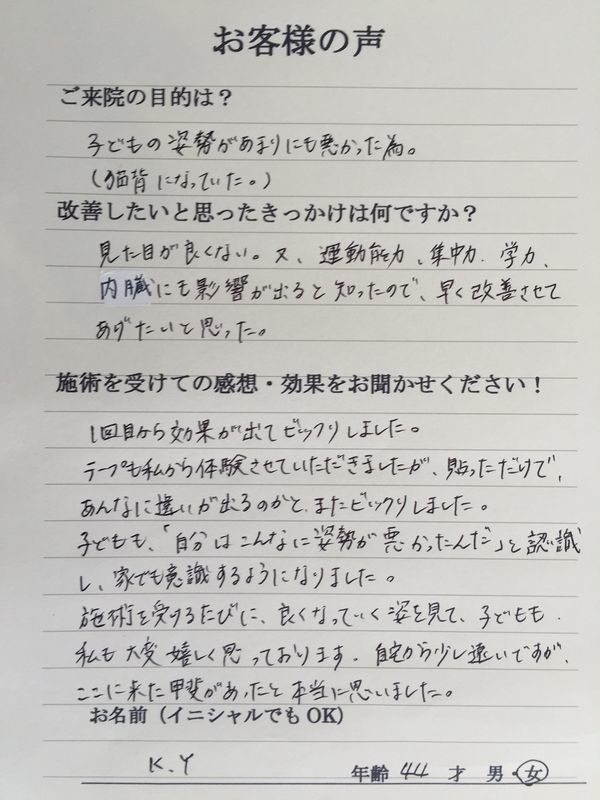 お客様の声
ご来院の目的は？
子どもの姿勢があまりにも悪かった為。
（猫背になっていた。）
改善したいと思ったきっかけは何ですか？
見た目が良くない。又、運動能力、集中力、学力、
内臓にも影響が出ると知ったので、早く改善させて
あげたいと思った。
施術を受けての感想・効果をお聞かせください！
1回目から効果が出てビックリしました。
テープも私から体験させていただきましたが、貼っただけで、
あんなに違いが出るのかと、またビックリしました。
子どもも、「自分はこんなに姿勢が悪かったんだ」と認識
し、家でも意識するようになりました。
施術を受けるたびに、良くなっていく姿を見て、子どもも、
私も大変嬉しく思っております。自宅から少し遠いですが、
ここに来た甲斐があったと本当に思いました。
お名前（イニシャルでもOK）
K.Y
年齢 44 才 男・女